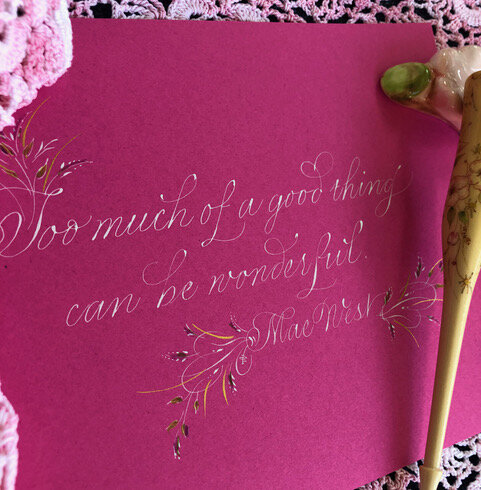 Too much of a good thing
can be wonderful.
Mae West